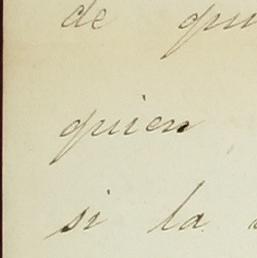 de qu
quien
si la